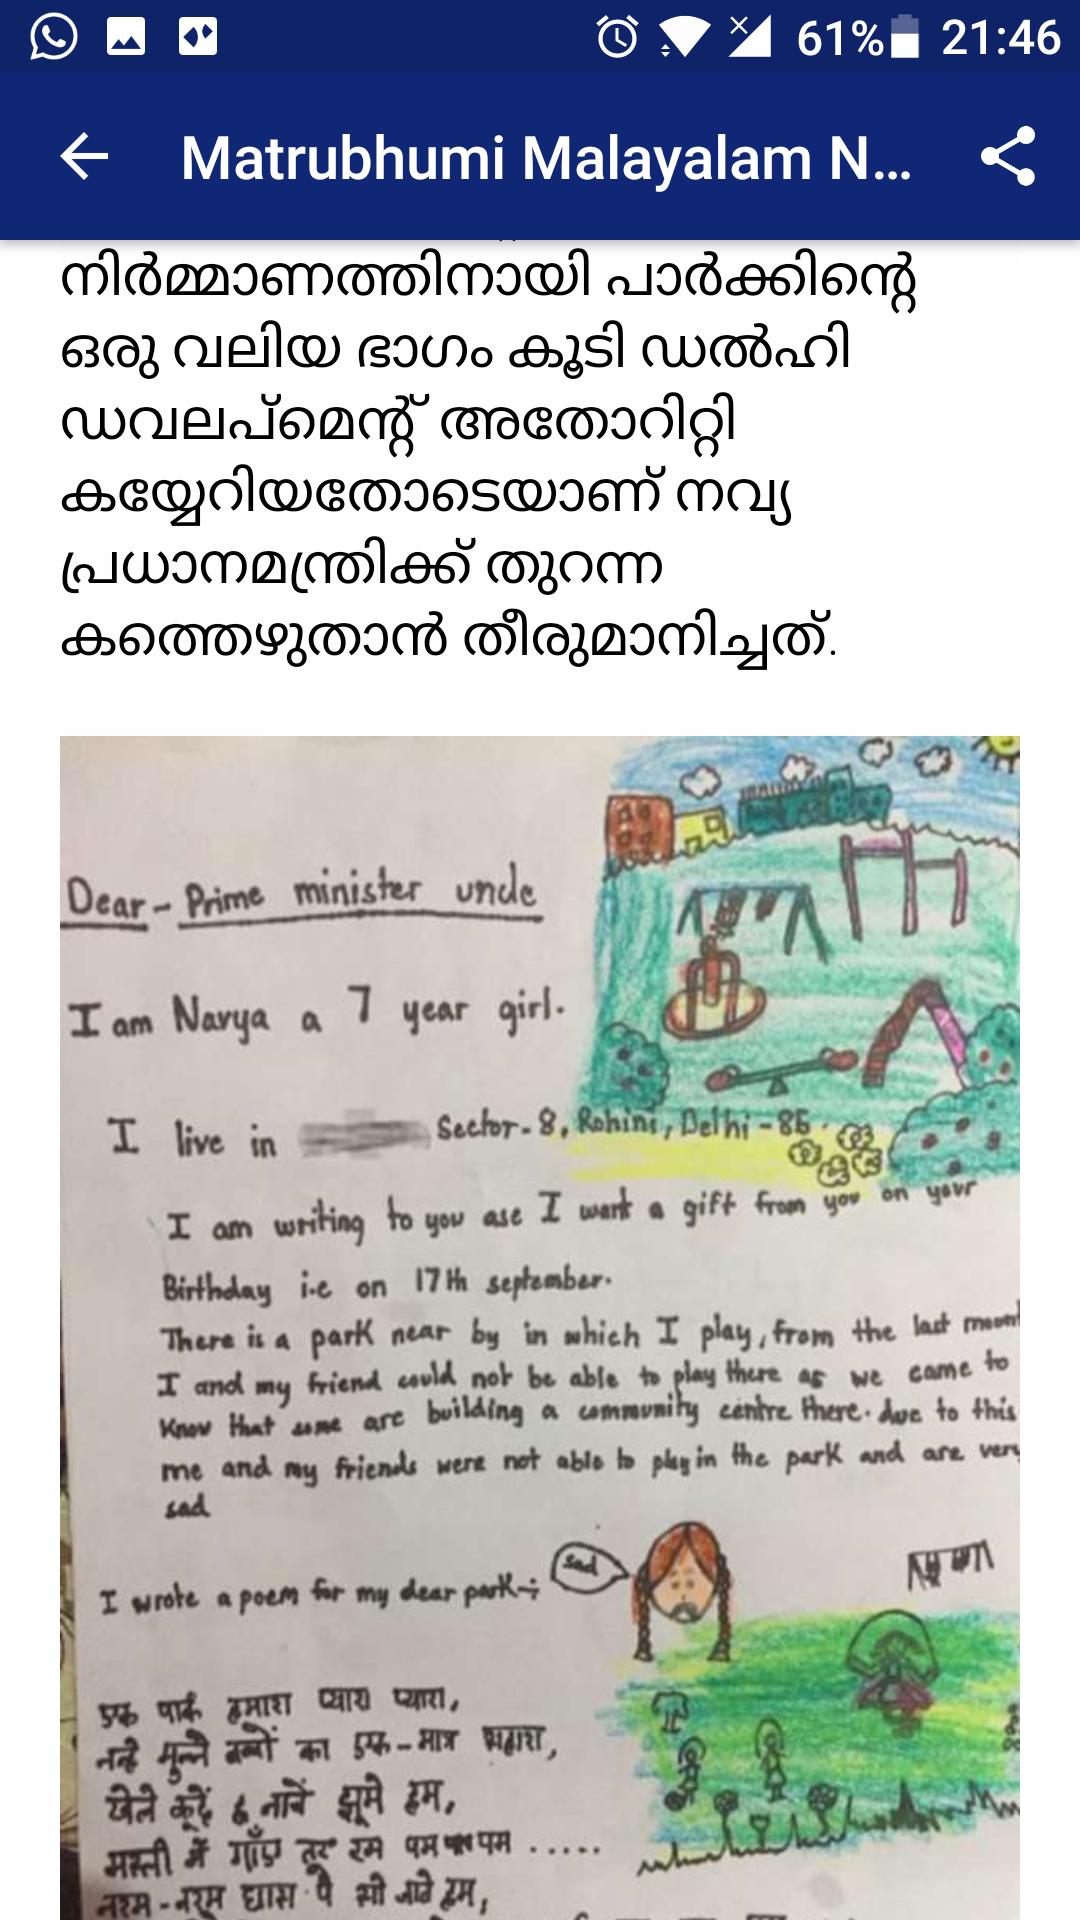 61% 21:46
Matrubhumi Malayalam N...
നിർമ്മാണത്തിനായി പാർക്കിന്റെ
ഒരു വലിയ ഭാഗം കൂടി ഡൽഹി
ഡവലപ്മെന്റ് അതോറിറ്റി
കയ്യേറിയതോടെയാണ് നവ്യ
പ്രധാനമന്ത്രിക്ക് തുറന്ന
കത്തെഴുതാൻ തീരുമാനിച്ചത്.
Dear - Prime minister uncle
I am Navya a 7 year girl.
I live in Sector-8, Rohini, Delhi-85.
I am writing to you ase I want a gift from you on your
Birthday i.e on 17th september.
There is a park near by in which I play, from the last
I and my friend could not be able to play there as we came to
know that some are building a community centre there. due to this
me and my friends were not able to play in the park and are very
sad
I wrote a poem for my dear park-
sad
एक पार्क हमारा प्यारा प्यारा,
नन्हे मुन्ने बच्चों का एक-मात्र सहारा,
खेले कूदें नाचें झूमे हम,
मस्ती में गाँए रम पम पम .....
नरम-नरम घास पे हम,